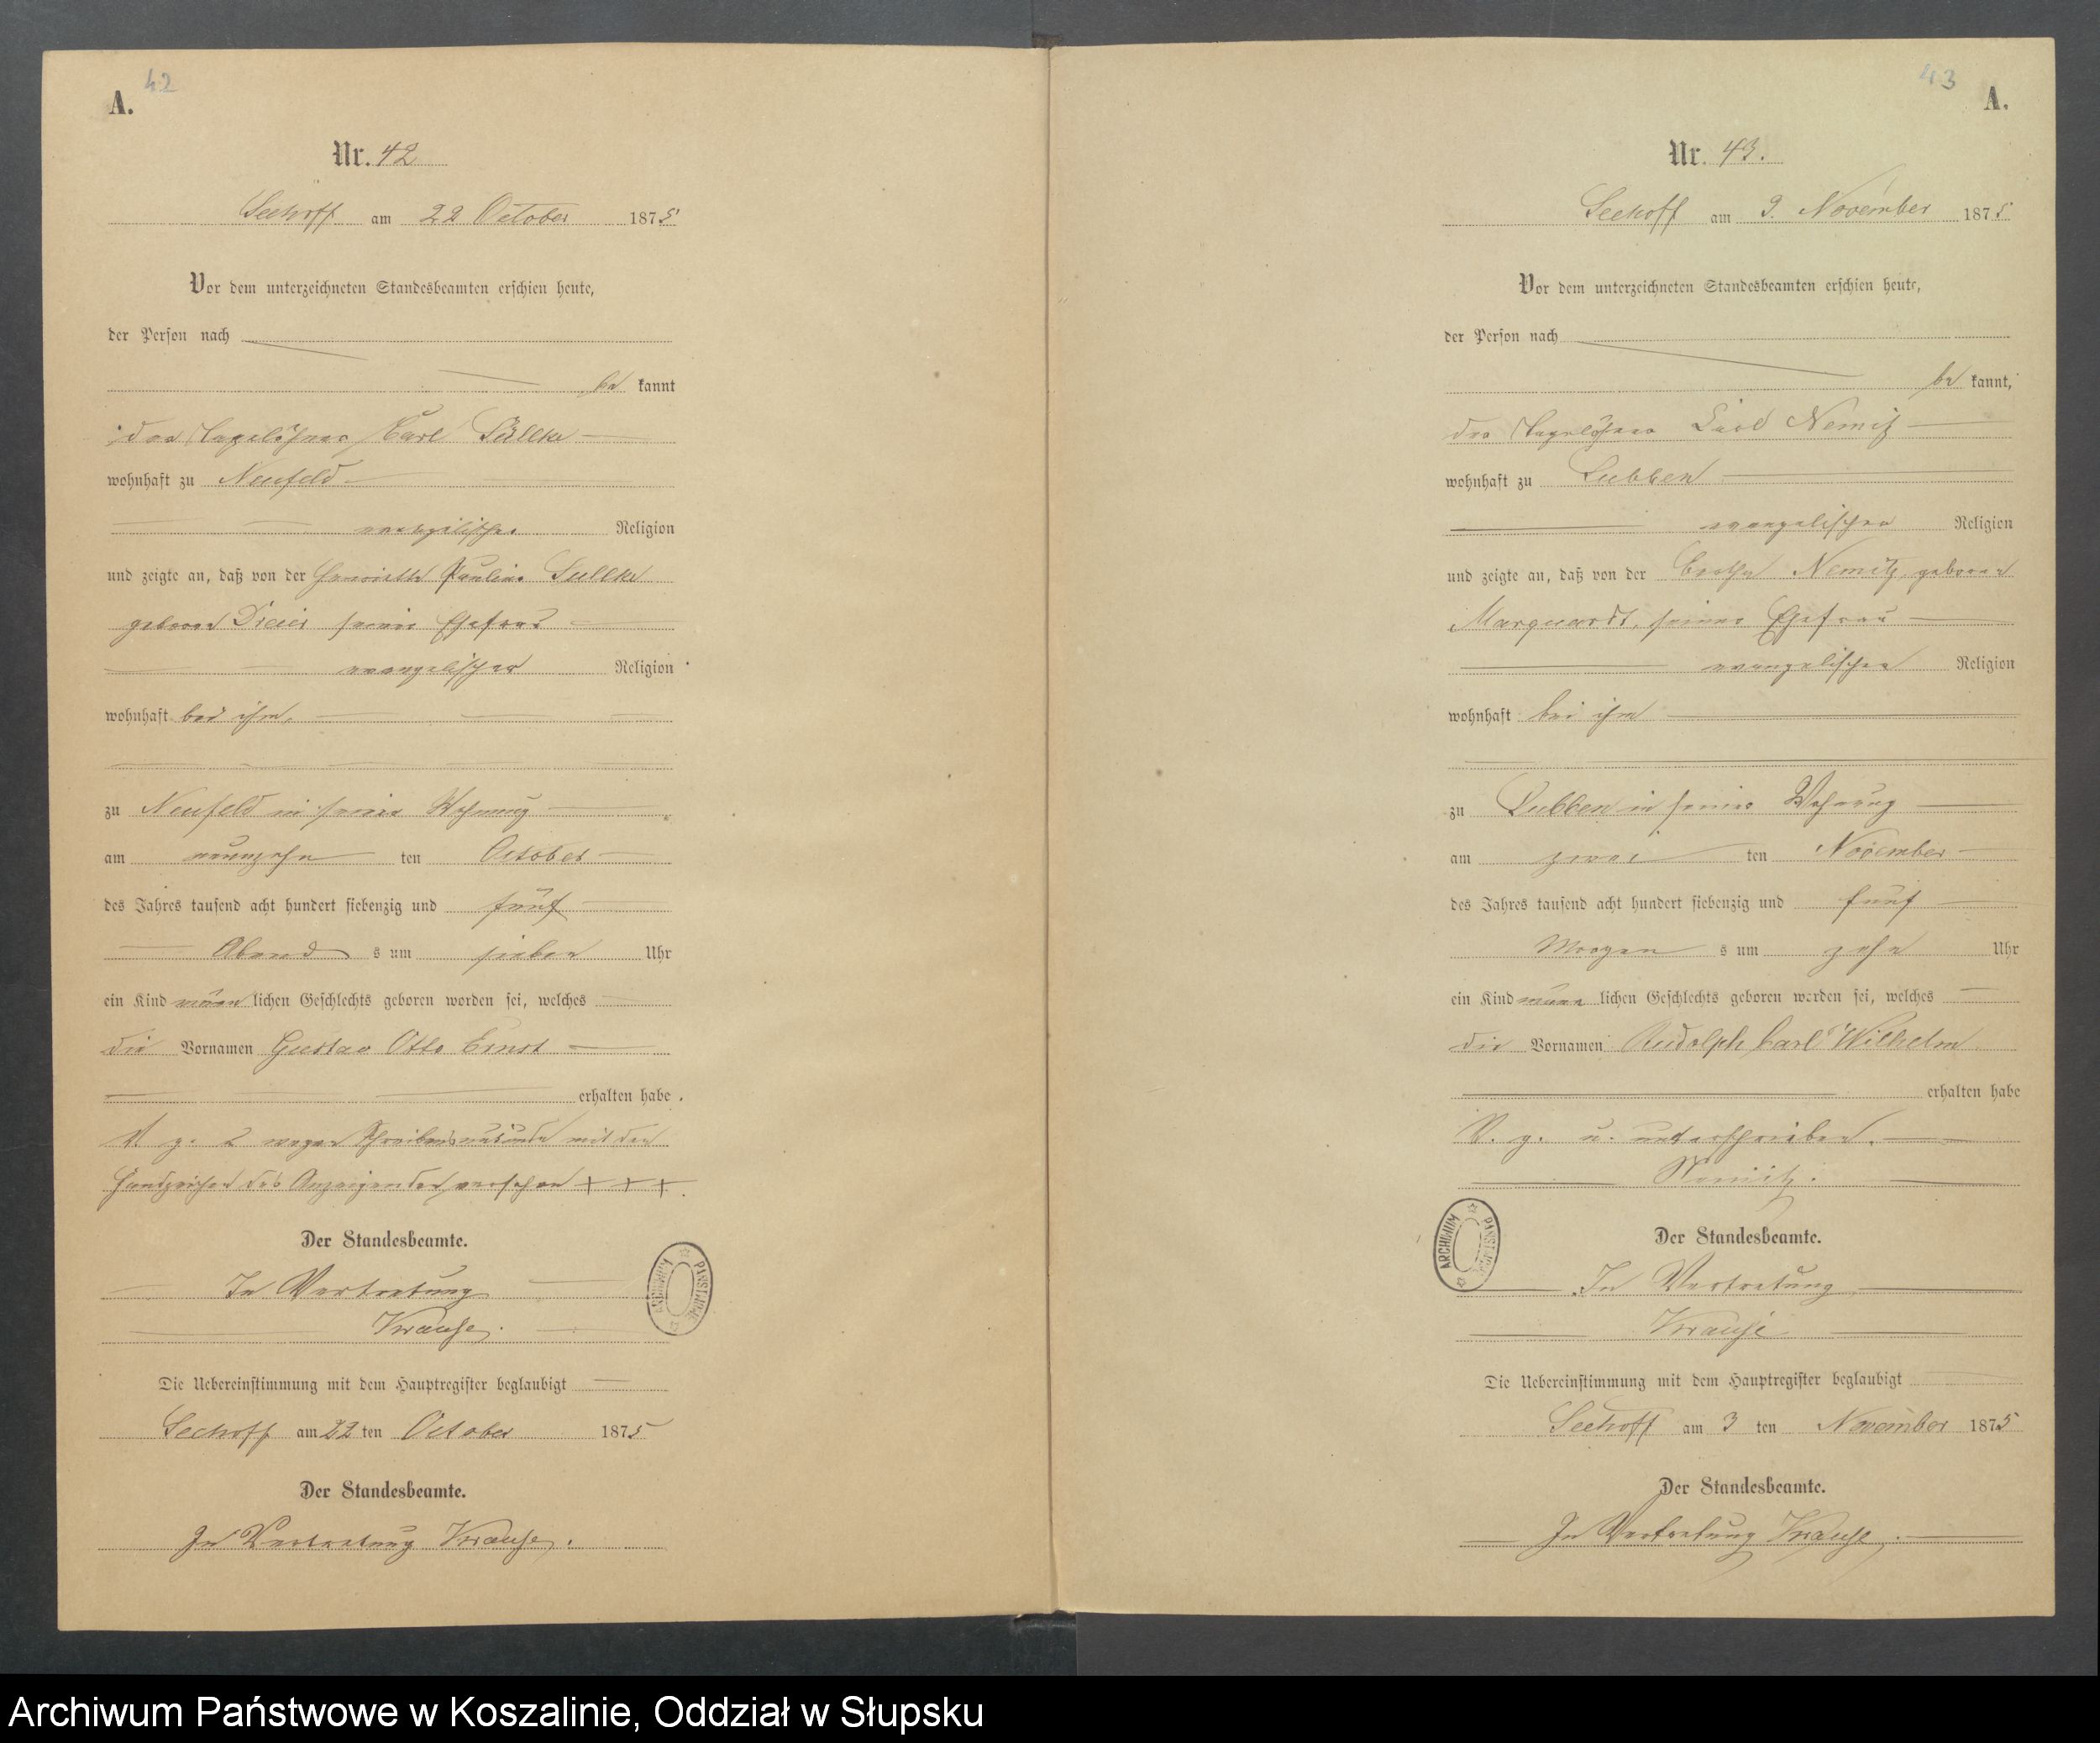 42
A.
Nr. 42
Seehoff am 22 October 1875
Vor dem unterzeichneten Standesbeamten erschien heute,
der Person nach
be kannt
der Tagelöhner Carl Süllke
wohnhaft zu Neufeld
evangelischer Religion
und zeigte an, daß von der Henriette Pauline Sullke
geboren Dreier seiner Ehefrau
evangelischer Religion
wohnhaft bei ihm,
zu Neufeld in seiner Wohnung
am neunzehn ten October
des Jahres tausend acht hundert siebenzig und fünf
Abend s um sieben Uhr
ein Kind männ lichen Geschlechts geboren worden sei, welches
die Vornamen Gustav Otto Ernst
erhalten habe.
V. g. u wegen Schreibensunkunde mit den
Handzeichen des Anzeigenden versehen + + +
Der Standesbeamte.
In Vertretung
Krause.
Die Uebereinstimmung mit dem Hauptregister beglaubigt
Seehoff am 22 ten October 1875
Der Standesbeamte.
In Vertretung Krause.
ARCHIWUM PAŃSTWOWE
43
A.
Nr. 43.
Seehoff am 3. November 1875
Vor dem unterzeichneten Standesbeamten erschien heute,
der Person nach
be kannt,
der Tagelöhner Carl Nemitz
wohnhaft zu Lubben
evangelischen Religion
und zeigte an, daß von der Nemitz, geboren
Marquardt, seiner Ehefrau
evangelischen Religion
wohnhaft bei ihm
zu Lubben in seiner Wohnung
am zwei ten November
des Jahres tausend acht hundert siebenzig und fünf
Morgen s um zehn Uhr
ein Kind männ lichen Geschlechts geboren worden sei, welches
die Vornamen Rudolph Carl Wilhelm
erhalten habe
V. g. u. unterschrieben.
Nemitz.
ARCHIWUM PAŃSTWOWE
Der Standesbeamte.
In Vertretung
Krause
Die Uebereinstimmung mit dem Hauptregister beglaubigt
Seehoff am 3 ten November 1875
Der Standesbeamte.
In Vertretung Krause.
Archiwum Państwowe w Koszalinie, Oddział w Słupsku